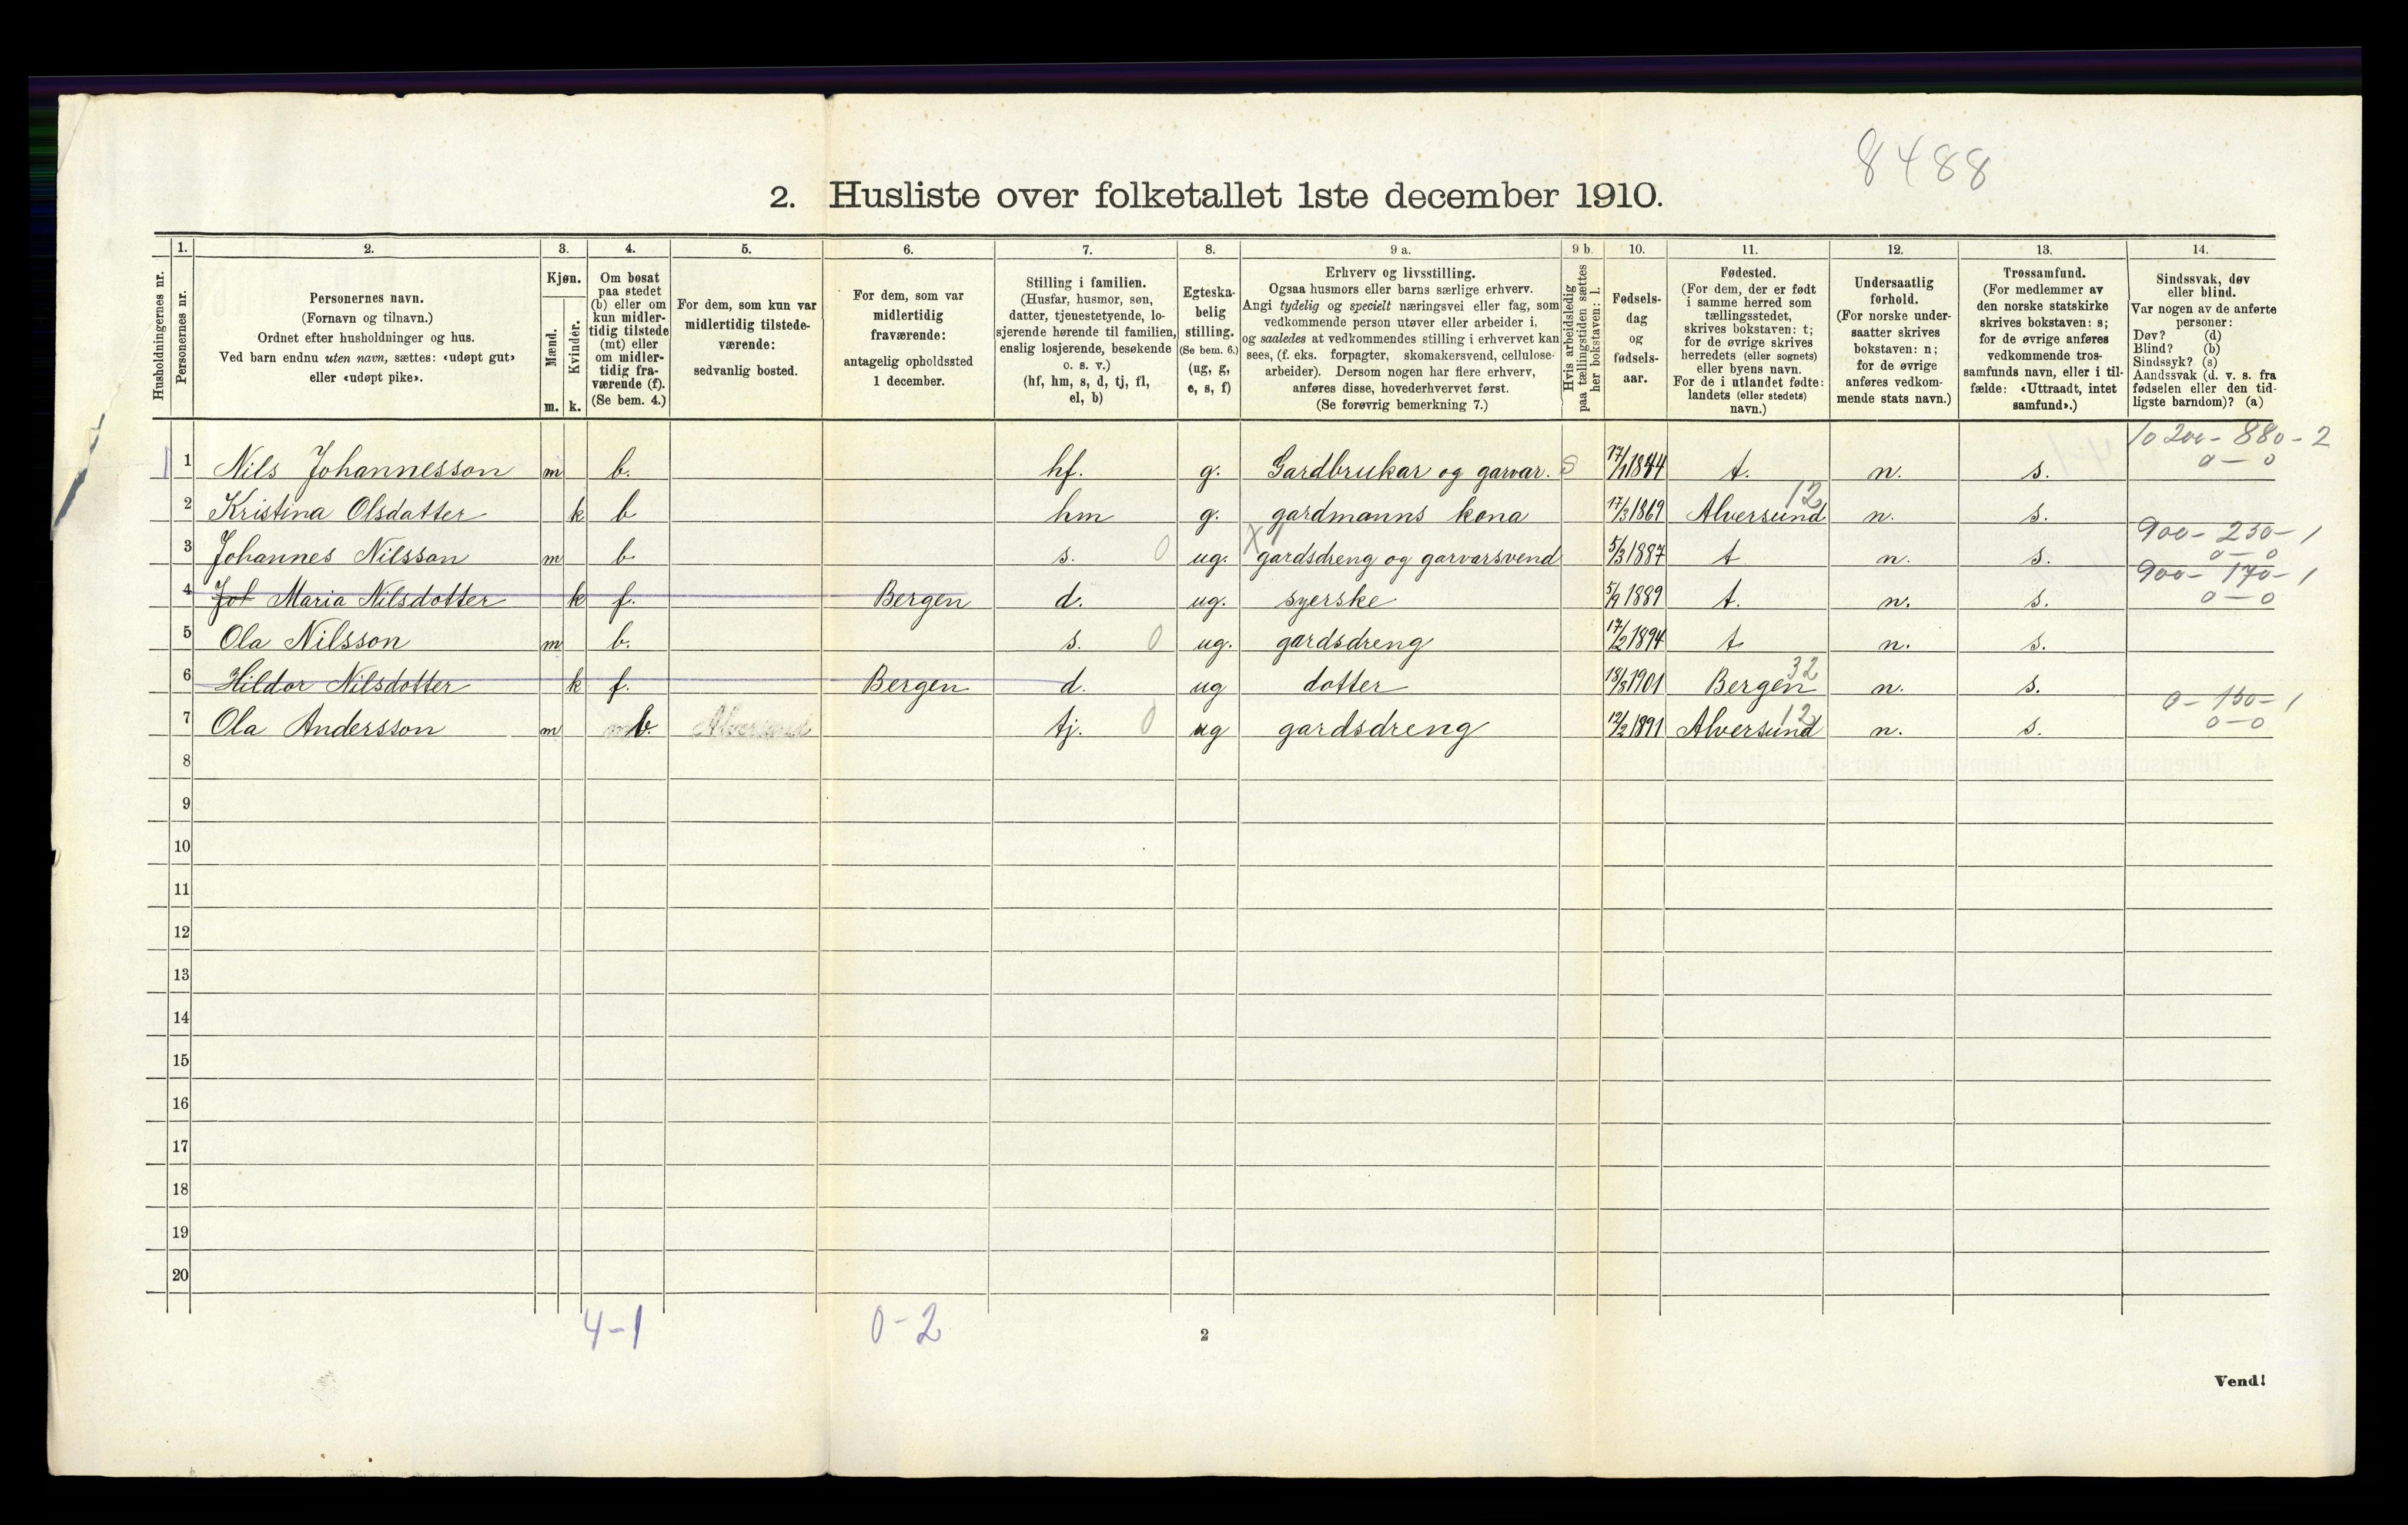 8488
2. Husliste over folketallet 1ste december 1910.
1. 2. 3. 4. 5. 6. 7. 8. 9 a. 9 b. 10. 11. 12. 13. 14.
Husholdningernes nr.
Personernes nr.
Personernes navn.
(Fornavn og tilnavn.)
Ordnet efter husholdninger og hus.
Ved barn endnu uten navn, sættes: «udøpt gut»
eller «udøpt pike».
Kjøn.
Mænd.
Kvinder.
m. k.
Om bosat
paa stedet
(b) eller om
kun midler-
tidig tilstede
(mt) eller
om midler-
tidig fra-
værende (f).
(Se bem. 4.)
For dem, som kun var
midlertidig tilstede-
værende:
sedvanlig bosted.
For dem, som var
midlertidig
fraværende:
antagelig opholdssted
1 december.
Stilling i familien.
(Husfar, husmor, søn,
datter, tjenestetyende, lo-
sjerende hørende til familien,
enslig losjerende, besøkende
o. s. v.)
(hf, hm, s, d, tj, fl,
el, b)
Egteska-
belig
stilling.
(Se bem. 6.)
(ug, g,
e, s, f)
Erhverv og livsstilling.
Ogsaa husmors eller barns særlige erhverv.
Angi tydelig og specielt næringsvei eller fag, som
vedkommende person utøver eller arbeider i,
og saaledes at vedkommendes stilling i erhvervet kan
sees, (f. eks. forpagter, skomakersvend, cellulose-
arbeider). Dersom nogen har flere erhverv,
anføres disse, hovederhvervet først.
(Se forøvrig bemerkning 7.)
Hvis arbeidsledig
paa tællingstiden sættes
her bokstaven: l.
Fødsels-
dag
og
fødsels-
aar.
Fødested.
(For dem, der er født
i samme herred som
tællingsstedet,
skrives bokstaven: t;
for de øvrige skrives
herredets (eller sognets)
eller byens navn.
For de i utlandet fødte:
landets (eller stedets)
navn.)
Undersaatlig
forhold.
(For norske under-
saatter skrives
bokstaven: n;
for de øvrige
anføres vedkom-
mende stats navn.)
Trossamfund.
(For medlemmer av
den norske statskirke
skrives bokstaven: s;
for de øvrige anføres
vedkommende tros-
samfunds navn, eller i til-
fælde: «Uttraadt, intet
samfund».)
Sindssvak, døv
eller blind.
Var nogen av de anførte
personer:
Døv? (d)
Blind? (b)
Sindssyk? (s)
Aandssvak (d. v. s. fra
fødselen eller den tid-
ligste barndom)? (a)
10200 - 880 - 2
1 1 Nils Johannesson m b. hf. g. Gardbrukar og garvar. S 17/1 1844 t. n. s. 0 - 0
2 Kristina Olsdatter k b hm g. gardmanns kona 17/3 1869 Alversund 12 n. s.
900 - 250 - 1
3 Johannes Nilsson m b s. 0 ug. X gardsdreng og garvarsvend 5/3 1887 t n. s. 0 - 0
900 - 170 - 1
4 Joh Maria Nilsdotter k f. Bergen d. ug. syerske 5/9 1889 t. n. s. 0 - 0
5 Ola Nilsson m b. s. 0 ug. gardsdreng 17/2 1894 t n. s.
6 Hildor Nilsdotter k f. Bergen d. ug dotter 18/8 1901 Bergen 32 n. s.
0 - 150 - 1
7 Ola Andersson m b. Alversund tj. 0 ug gardsdreng 12/2 1891 Alversund 12 n. s. 0 - 0
8
9
10
11
12
13
14
15
16
17
18
19
20
4-1 0-2
2
Vend!